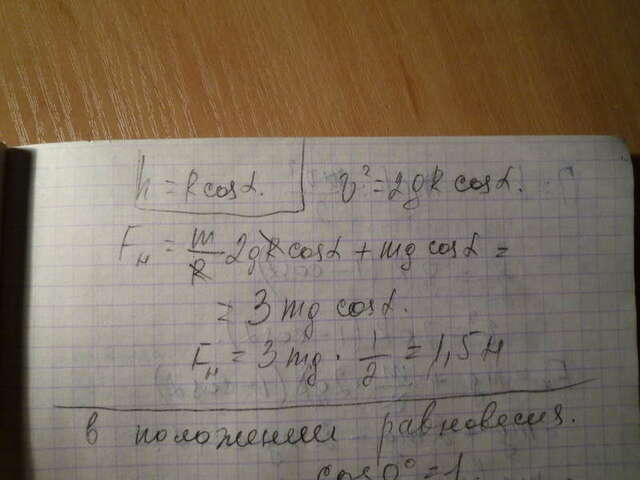 h = R cosα. v² = 2gR cosα.
Fн = m/R 2gR cosα + mg cosα =
= 3mg cosα.
Fн = 3mg · 1/2 = 1,5н
в положении равновесия.
cos0° = 1.